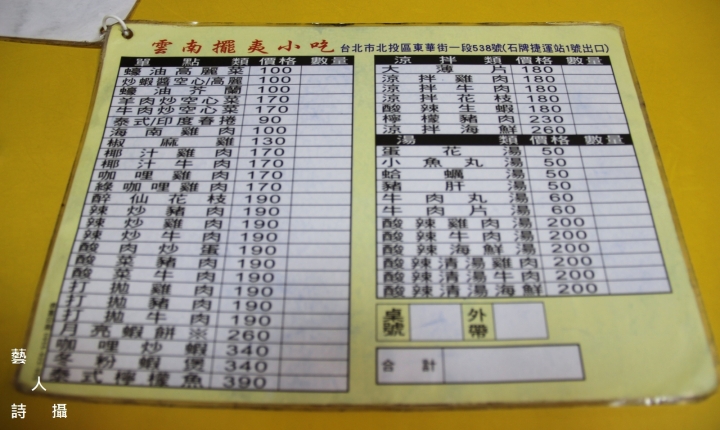 雲南擺夷小吃 台北市北投區東華街一段538號(石牌捷運站1號出口)
單點類 價格 數量
蠔油高麗菜 100
炒蝦醬空心/高麗 100
蠔油芥蘭 100
羊肉炒空心菜 170
牛肉炒空心菜 170
泰式/印度春捲 90
海南雞肉 100
椒麻雞 130
椰汁雞肉 170
椰汁牛肉 170
咖哩雞肉 170
綠咖哩雞肉 170
醉仙花枝 190
辣炒豬肉 190
辣炒雞肉 190
辣炒牛肉 190
酸肉炒蛋 190
酸菜豬肉 190
酸菜牛肉 190
打拋雞肉 190
打拋豬肉 190
打拋牛肉 190
月亮蝦餅※ 260
咖哩炒蝦 340
冬粉蝦煲 340
泰式檸檬魚 390
涼拌類 價格 數量
大薄片 180
涼拌雞肉 180
涼拌牛肉 180
涼拌花枝 180
酸辣生蝦 180
檸檬豬肉 230
涼拌海鮮 260
湯類 價格 數量
蛋花湯 50
小魚丸湯 50
蛤蠣湯 50
豬肝湯 50
牛肉丸湯 60
牛肉片湯 60
酸辣雞肉湯 200
酸辣牛肉湯 200
酸辣海鮮湯 200
酸辣清湯雞肉 200
酸辣清湯牛肉 200
酸辣清湯海鮮 200
桌號 外帶
合計
藝人
詩攝